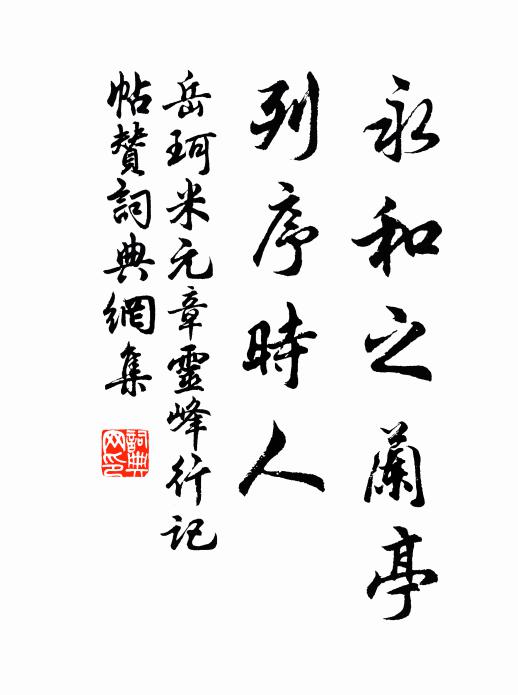 永和之蘭亭
列序時人
岳珂米元章靈峰行記
帖贊詞典網集
詞典
网印